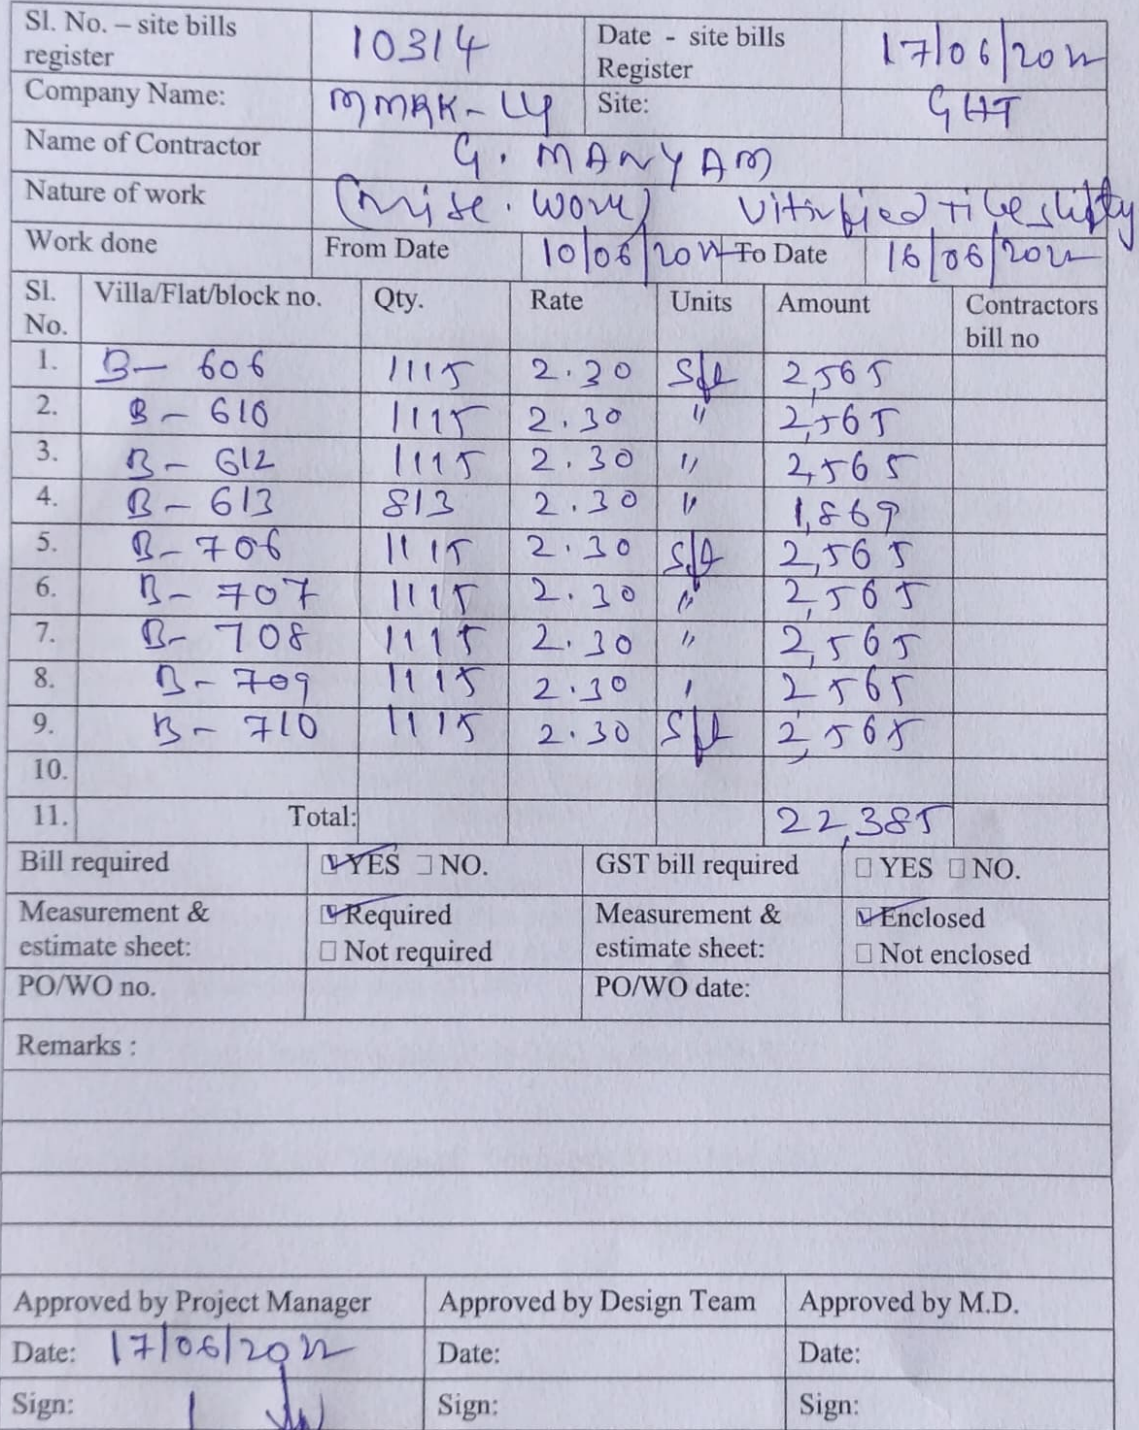 Sl. No. – site bills register 10314 Date - site bills Register 17/06/2022
Company Name: MMRK-LLP Site: GHT
Name of Contractor G. MANYAM
Nature of work (Misc. work) Vitrified Tile shifty
Work done From Date 10/06/2022 To Date 16/06/2022
Sl. No. Villa/Flat/block no. Qty. Rate Units Amount Contractors bill no
1. B- 606 1115 2.30 Sft 2,565
2. B- 610 1115 2.30 " 2,565
3. B- 612 1115 2.30 " 2,565
4. B- 613 813 2.30 " 1,869
5. B- 706 1115 2.30 Sft 2,565
6. B- 707 1115 2.30 " 2,565
7. B- 708 1115 2.30 " 2,565
8. B- 709 1115 2.30 " 2565
9. B- 710 1115 2.30 Sft 2,565
10.
11. Total: 22,385
Bill required ☑ YES ☐ NO. GST bill required ☐ YES ☐ NO.
Measurement & estimate sheet: ☑ Required ☐ Not required Measurement & estimate sheet: ☑ Enclosed ☐ Not enclosed
PO/WO no. PO/WO date:
Remarks :
Approved by Project Manager Approved by Design Team Approved by M.D.
Date: 17/06/2022 Date: Date:
Sign: Sign: Sign: